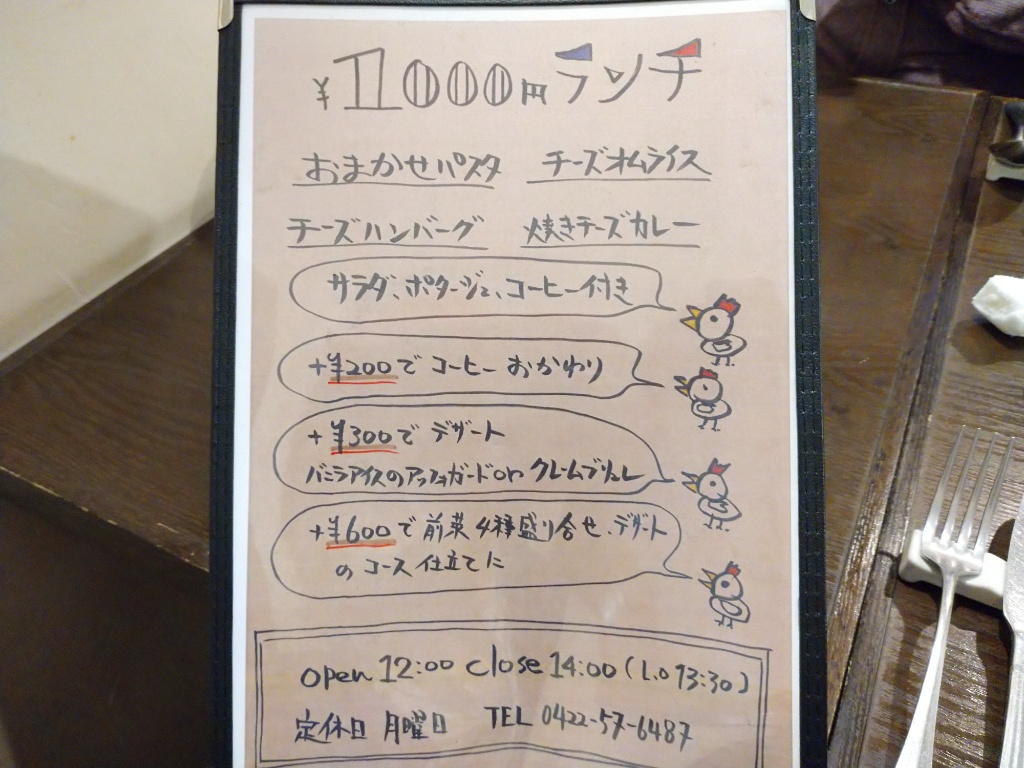 ¥1000円ランチ
おまかせパスタ チーズオムライス
チーズハンバーグ 焼きチーズカレー
サラダ、ポタージュ、コーヒー付き
+¥200で コーヒー おかわり
+¥300で デザート
バニラアイスのアフォガード or クレームブリュレ
+¥600で 前菜4種盛り合せ、デザート
のコース仕立てに
open 12:00 close 14:00 (L.o 13:30)
定休日 月曜日 TEL 0422-57-6487